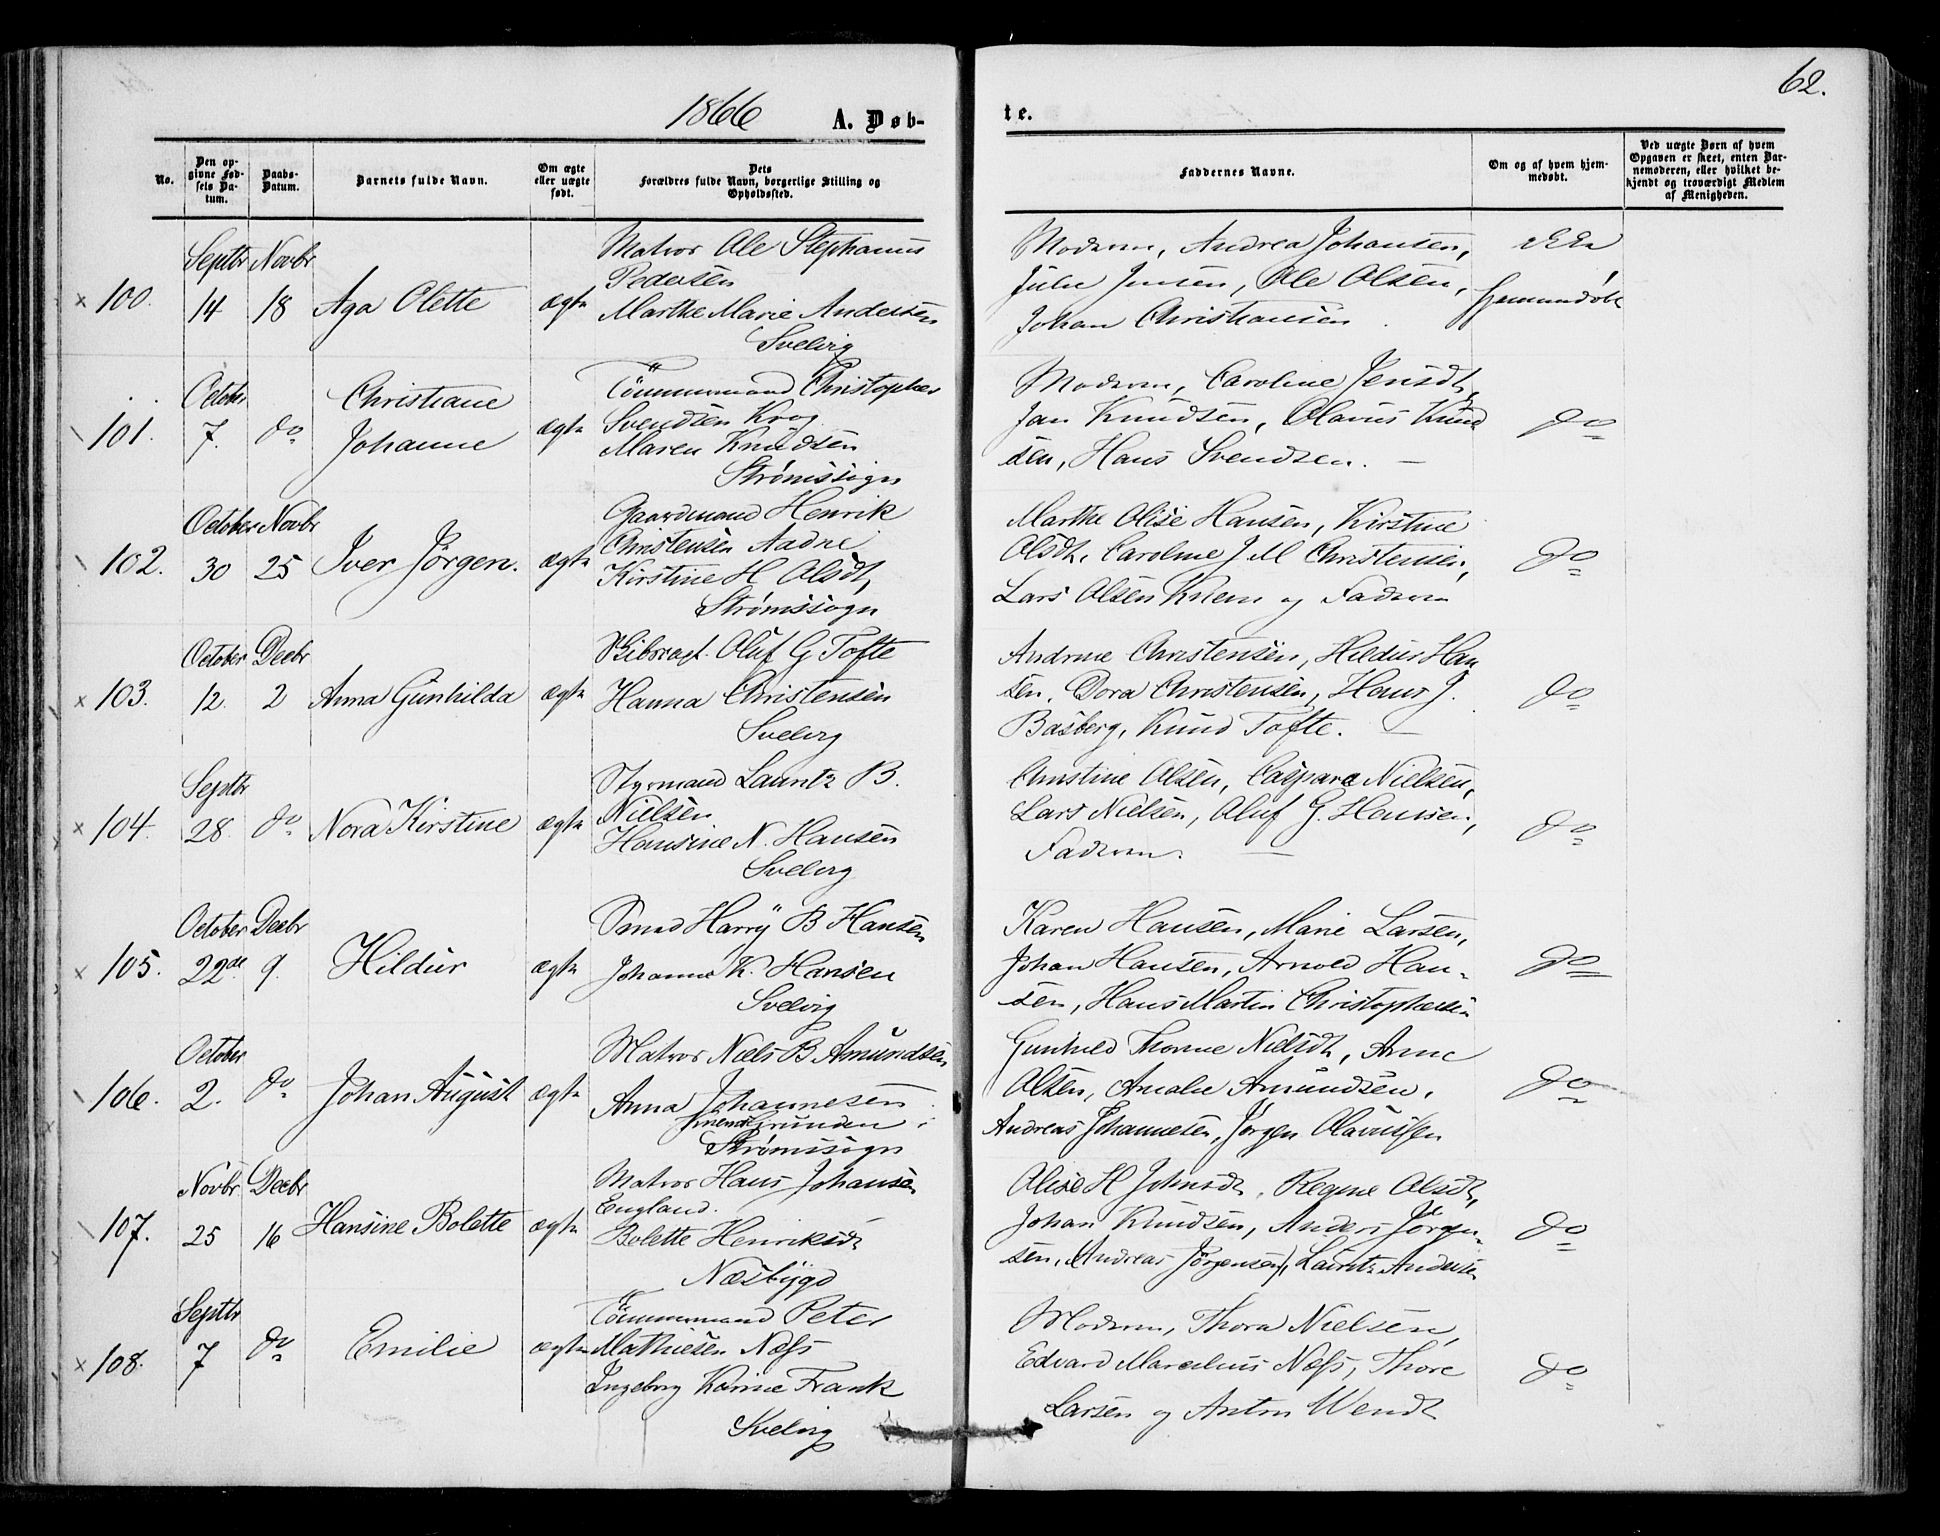 1866 A. Døb- te. 62.
No.
Den opgivne Fødsels Datum.
Daabs-Datum.
Barnets fulde Navn.
Om ægte eller uægte født.
Dets Forældres fulde Navn, borgerlige Stilling og Opholdssted.
Faddernes Navne.
Om og af hvem hjemmedøbt.
Ved uægte Børn af hvem Opgaven er skeet, enten Barnemoderen, eller hvilket bekjendt og troværdigt Medlem af Menigheden.
Septbr Novbr
100. 14 18 Aga Olette ægte
Matros Ole Stephanus
Pedersen
Marthe Marie Andersen
Svelvig
Moderen, Andrea Johansen,
Julie Jensen, Ole Olsen,
Johan Christiansen.
ikke
hjemmedøbt
October
101. 7. do Christiane
Johanne ægte
Tömmermand Christopher
Svendsen Krog
Maren Knudsen
Strømssogn
Moderen, Caroline Jensdt,
Jan Knudsen, Olavus Knud
sen, Hans Svendsen. —
do
October Novbr
102. 30 25 Iver Jörgen. ægte
Gaardmand Henrik
Christensen Aadne
Kirstine H Olsdt,
Strømssogn
Marthe Olise Hansen, Kirstine
Olsdt, Caroline J M Christensen,
Lars Olsen og Faderen
do
October Decbr
103. 12. 2 Anna Gunhilda ægte
Skibsrapt. Oluf G Tofte
Hanna Christensen
Svelvig
Andrine Christensen, Hildur Han
sen, Dora Christensen, Hans J.
Basberg, Knud Tofte. —
do
Septbr
104. 28. do Nora Kirstine ægte
Styrmand Lauritz B.
Nielsen
Hansine N. Hansen
Svelvig
Christine Olsen, Caspara Nielsen,
Lars Nielsen, Oluf G. Hansen,
Faderen. —
do
October Decbr
105. 22de 9. Hildur ægte
Smed Harry B Hansen
Johanne K. Hansen
Svelvig
Karen Hansen, Marie Larsen,
Johan Hansen, Arnold Han-
sen, Hans Martin Christophersen
do
October
106. 2. do Johan August ægte
Matros Niels B Amundsen
Anna Johannesen
Grunden i
Strømssogn
Gunhild Thorine Nielsdt, Anne
Olsen, Amalie Amundsen,
Andreas Johannesen, Jørgen Olavussen
do
Novbr Decbr
107. 25 16 Hansine Bolette ægte
Matros Hans Johansen
England.
Bolette Henriksdt
Næsbygd
Olise H Johnsdt, Regine Olsdt,
Johan Knudsen, Anders Jörgen-
sen, (Andreas Jörgensen), Lauritz Andersen
do
Septbr
108. 7 do Emilie ægte
Tömmermand Peter
Mathiesen Næss
Ingeborg Karine Frank
Svelvig
Moderen, Thora Nielsen,
Edvard Marcelius Næss, Thore
Larsen og Anton Wendt
do